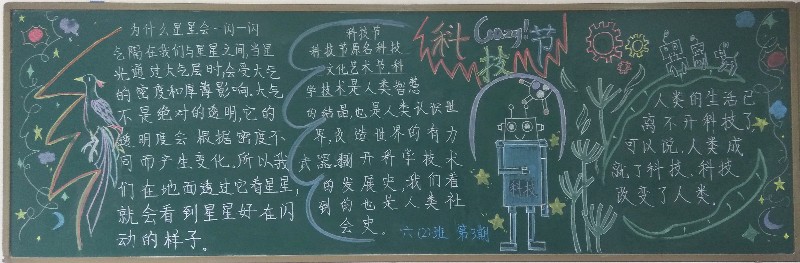 为什么星星会一闪一闪
气隔在我们与星星之间,当星
光通过大气层时,会受大气
的密度和厚薄影响。大气
不是绝对的透明,它的
透明度会根据密度不
同而产生变化。所以我
们在地面透过它看星星,
就会看到星星好在闪
动的样子。
科技节
科技节原名科技
文化艺术节,科
学技术是人类智慧
的结晶,也是人类认识世
界,改造世界的有力
武器。捆开科学技术
的发展史,我们看
到的也是人类社
会史。
六(2)班 第3期
Crazy!
科技节
科技
人类的生活已
离不开科技了,
可以说,人类成
就了科技,科技
改变了人类。